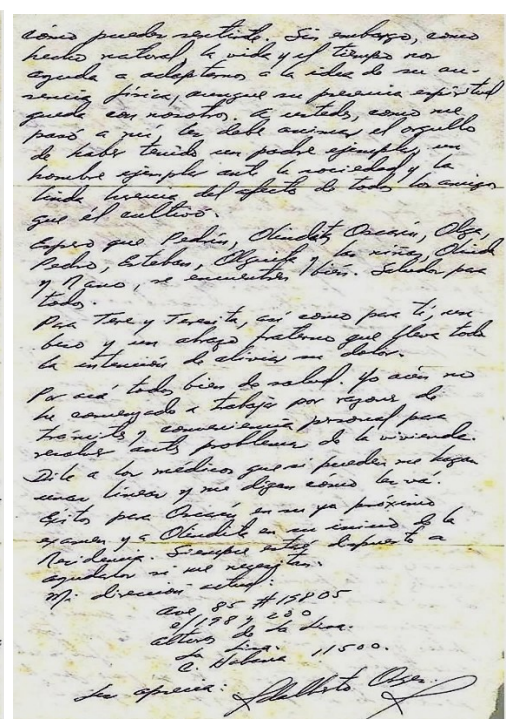 cómo pueden sentirse. Sin embargo, como
hecho natural, la vida y el tiempo nos
ayuda a adaptarnos a la idea de su au-
sencia física, aunque su presencia espiritual
queda con nosotros. A ustedes, como me
pasó a mí, les debe animar el orgullo
de haber tenido un padre ejemplar, un
hombre ejemplar ante la sociedad y la
linda herencia del afecto de todos los amigos
que él cultivó.
Espero que Pedrín, Olindita, Oscarín, Olga,
Pedro, Esteban, Olguita y las niñas, Olinda
y Nano, se encuentren bien. Saludos para
todos.
Para Tere y Teresita, así como para ti, un
beso y un abrazo fraterno que lleva toda
la intención de aliviar su dolor.
Por acá todos bien de salud. Yo aún no
he comenzado a trabajar por razones de
trámites y conveniencia personal para
resolver antes problemas de la vivienda.
Dile a los médicos que si pueden me hagan
unas líneas y me digan como les va.
Éxitos para Oscarín en su ya próximo
examen y a Olindita en su inicio de la
Residencia. Siempre estoy dispuesto a
ayudarlos si me necesitan.
Mi dirección actual:
Ave 85 # 19805
e/ 198 y 200
Altura de La Lisa.
La Lisa.
C. Habana 11500.
Les aprecia: Adalberto